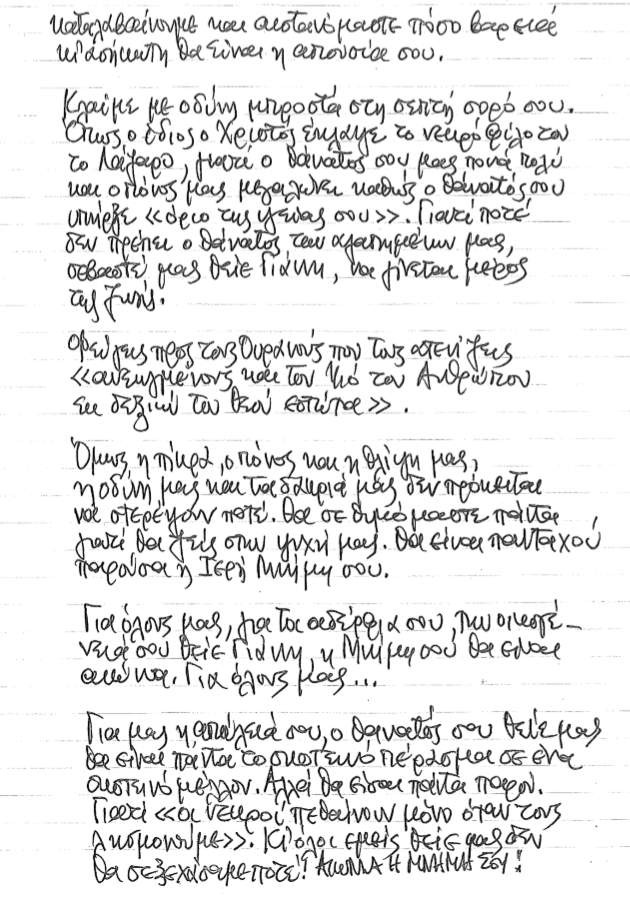 καταλαβαίνουμε και αιστανόμαστε πόσο βαρειά
κι' ασήκωτη θα είναι η απουσία σου.
Κλαίμε με οδύνη μπροστά στη σεπτή σορό σου.
Όπως ο ίδιος ο Χριστός έκλαψε το νεκρό φίλο του
το Λάζαρο, γιατί ο θάνατος σου μας πονά πολύ
και ο πόνος μας μεγαλώνει καθώς ο θάνατός σου
υπήρξε «όριο της γενιάς σου». Γιατί ποτέ
δεν πρέπει ο θάνατος των αγαπημένων μας,
σεβαστέ μας θείε Γιάννη, να γίνεται μέρος
της ζωής.
Φεύγεις προς τους Ουρανούς που τους ατενίζεις
«ανεωγμένους και τον Υιό του Ανθρώπου
εκ δεξιών του Θεού εστώτα».
Όμως η πίκρα, ο πόνος και η θλίψη μας,
η οδύνη μας και τα δάκρια μας δεν πρόκειται
να στερέψουν ποτέ. Θα σε θυμόμαστε πάντα
γιατί θα ζεις στην ψυχή μας. Θα είναι πανταχού
παρούσα η Ιερή Μνήμη σου.
Για όλους μας, για τα αδέρφια σου, την οικογέ-
νειά σου θείε Γιάννη, η Μνήμη σου θα είναι
αιώνια. Για όλους μας...
Για μας η απώλειά σου, ο θάνατός σου θείε μας
θα είναι πάντα το σκοτεινό πέρασμα σε ένα
φωτεινό μέλλον. Αλλά θα είσαι πάντα παρών.
Γιατί «οι νεκροί πεθαίνουν μόνο όταν τους
λησμονούμε». Κι' όλοι εμείς θείε μας δεν
θα σε ξεχάσουμε ποτέ! ΑΙΩΝΙΑ Η ΜΝΗΜΗ ΣΟΥ!